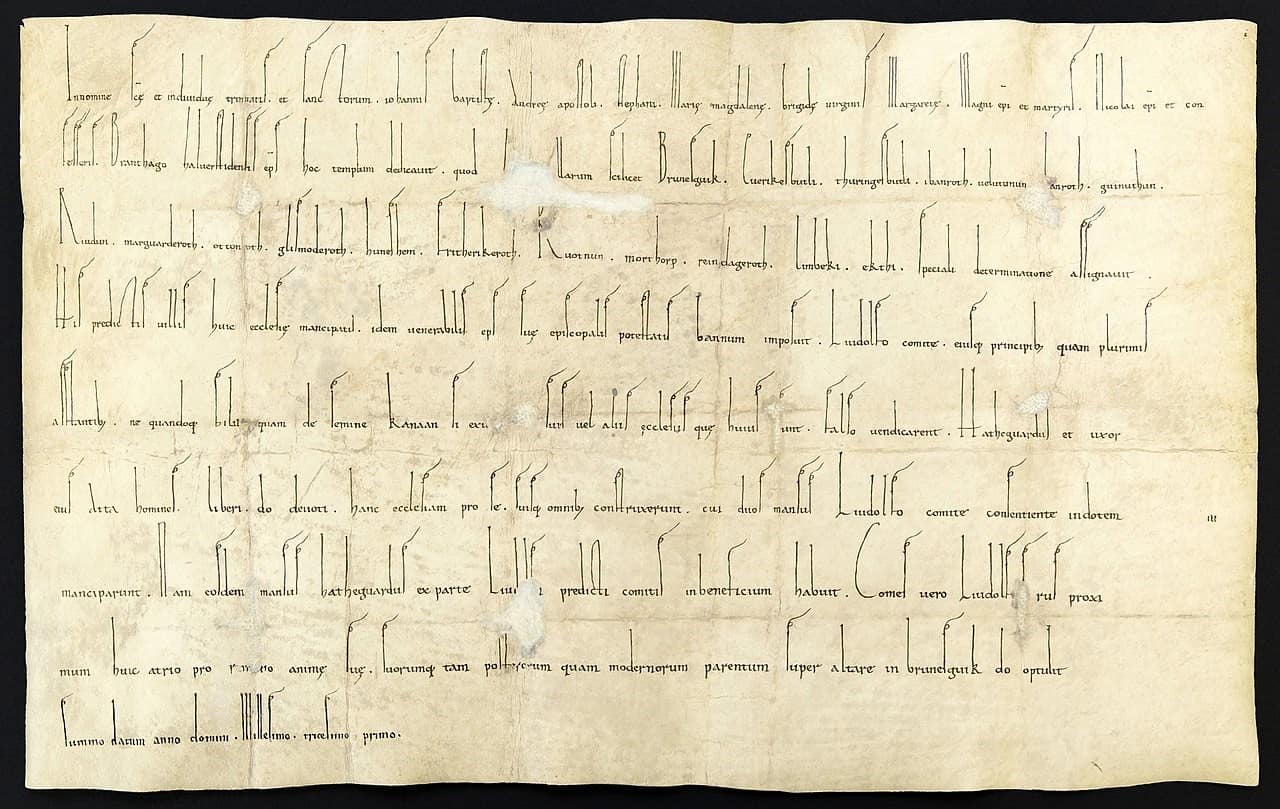 Innomine scę et individuę trinitatis. et sanctorum. iohannis baptistę. Andreę apostoli. stephani. Marię magdalenę. brigidę virginis Margaretę. Magni epi et martyris. Nicolai epi et con
fessoris. Branthago halverstidensis eps hoc templum dedicavit. quod villarum scilicet Brunesguik. Guerikesbutli. thuringesbutli. ibanroth. uelittunun hanroth. guinuthun.
Riudun. marguarderoth. ottonroth. glismoderoth. huneshem. Fritherikeroth. Ruotnun. morthorp. reindageroth. limbeki. ekthi. speciali determinatione assignavit.
His predictis villis huic ecclesię mancipatis. idem venerabilis eps suę episcopalis potestatis bannum imposuit. Liudolfo comite. eiusq; principib; quam plurimis
astantib;. ne quandoq; filii quam de semine kanaan si sui vel aliis ęcclesiis quę huius sunt. falso vendicarent. Hatheguardus et uxor
eius Atta homines. liberi. do devoti. hanc ecclesiam pro se. suisq; omnib; construxerunt. cui duos mansus Liudolfo comite consentiente indotem
III
manciparunt. Nam eosdem mansus hatheguardus ex parte Liudolfi predicti comitis inbeneficium habuit. Comes vero Liudolfus rus proxi
mum huic atrio pro remedio animę suę. suorumq; tam posterorum quam modernorum parentum super altare in brunesguik do optulit
summo datum anno domini. Millesimo. tricesimo. primo.